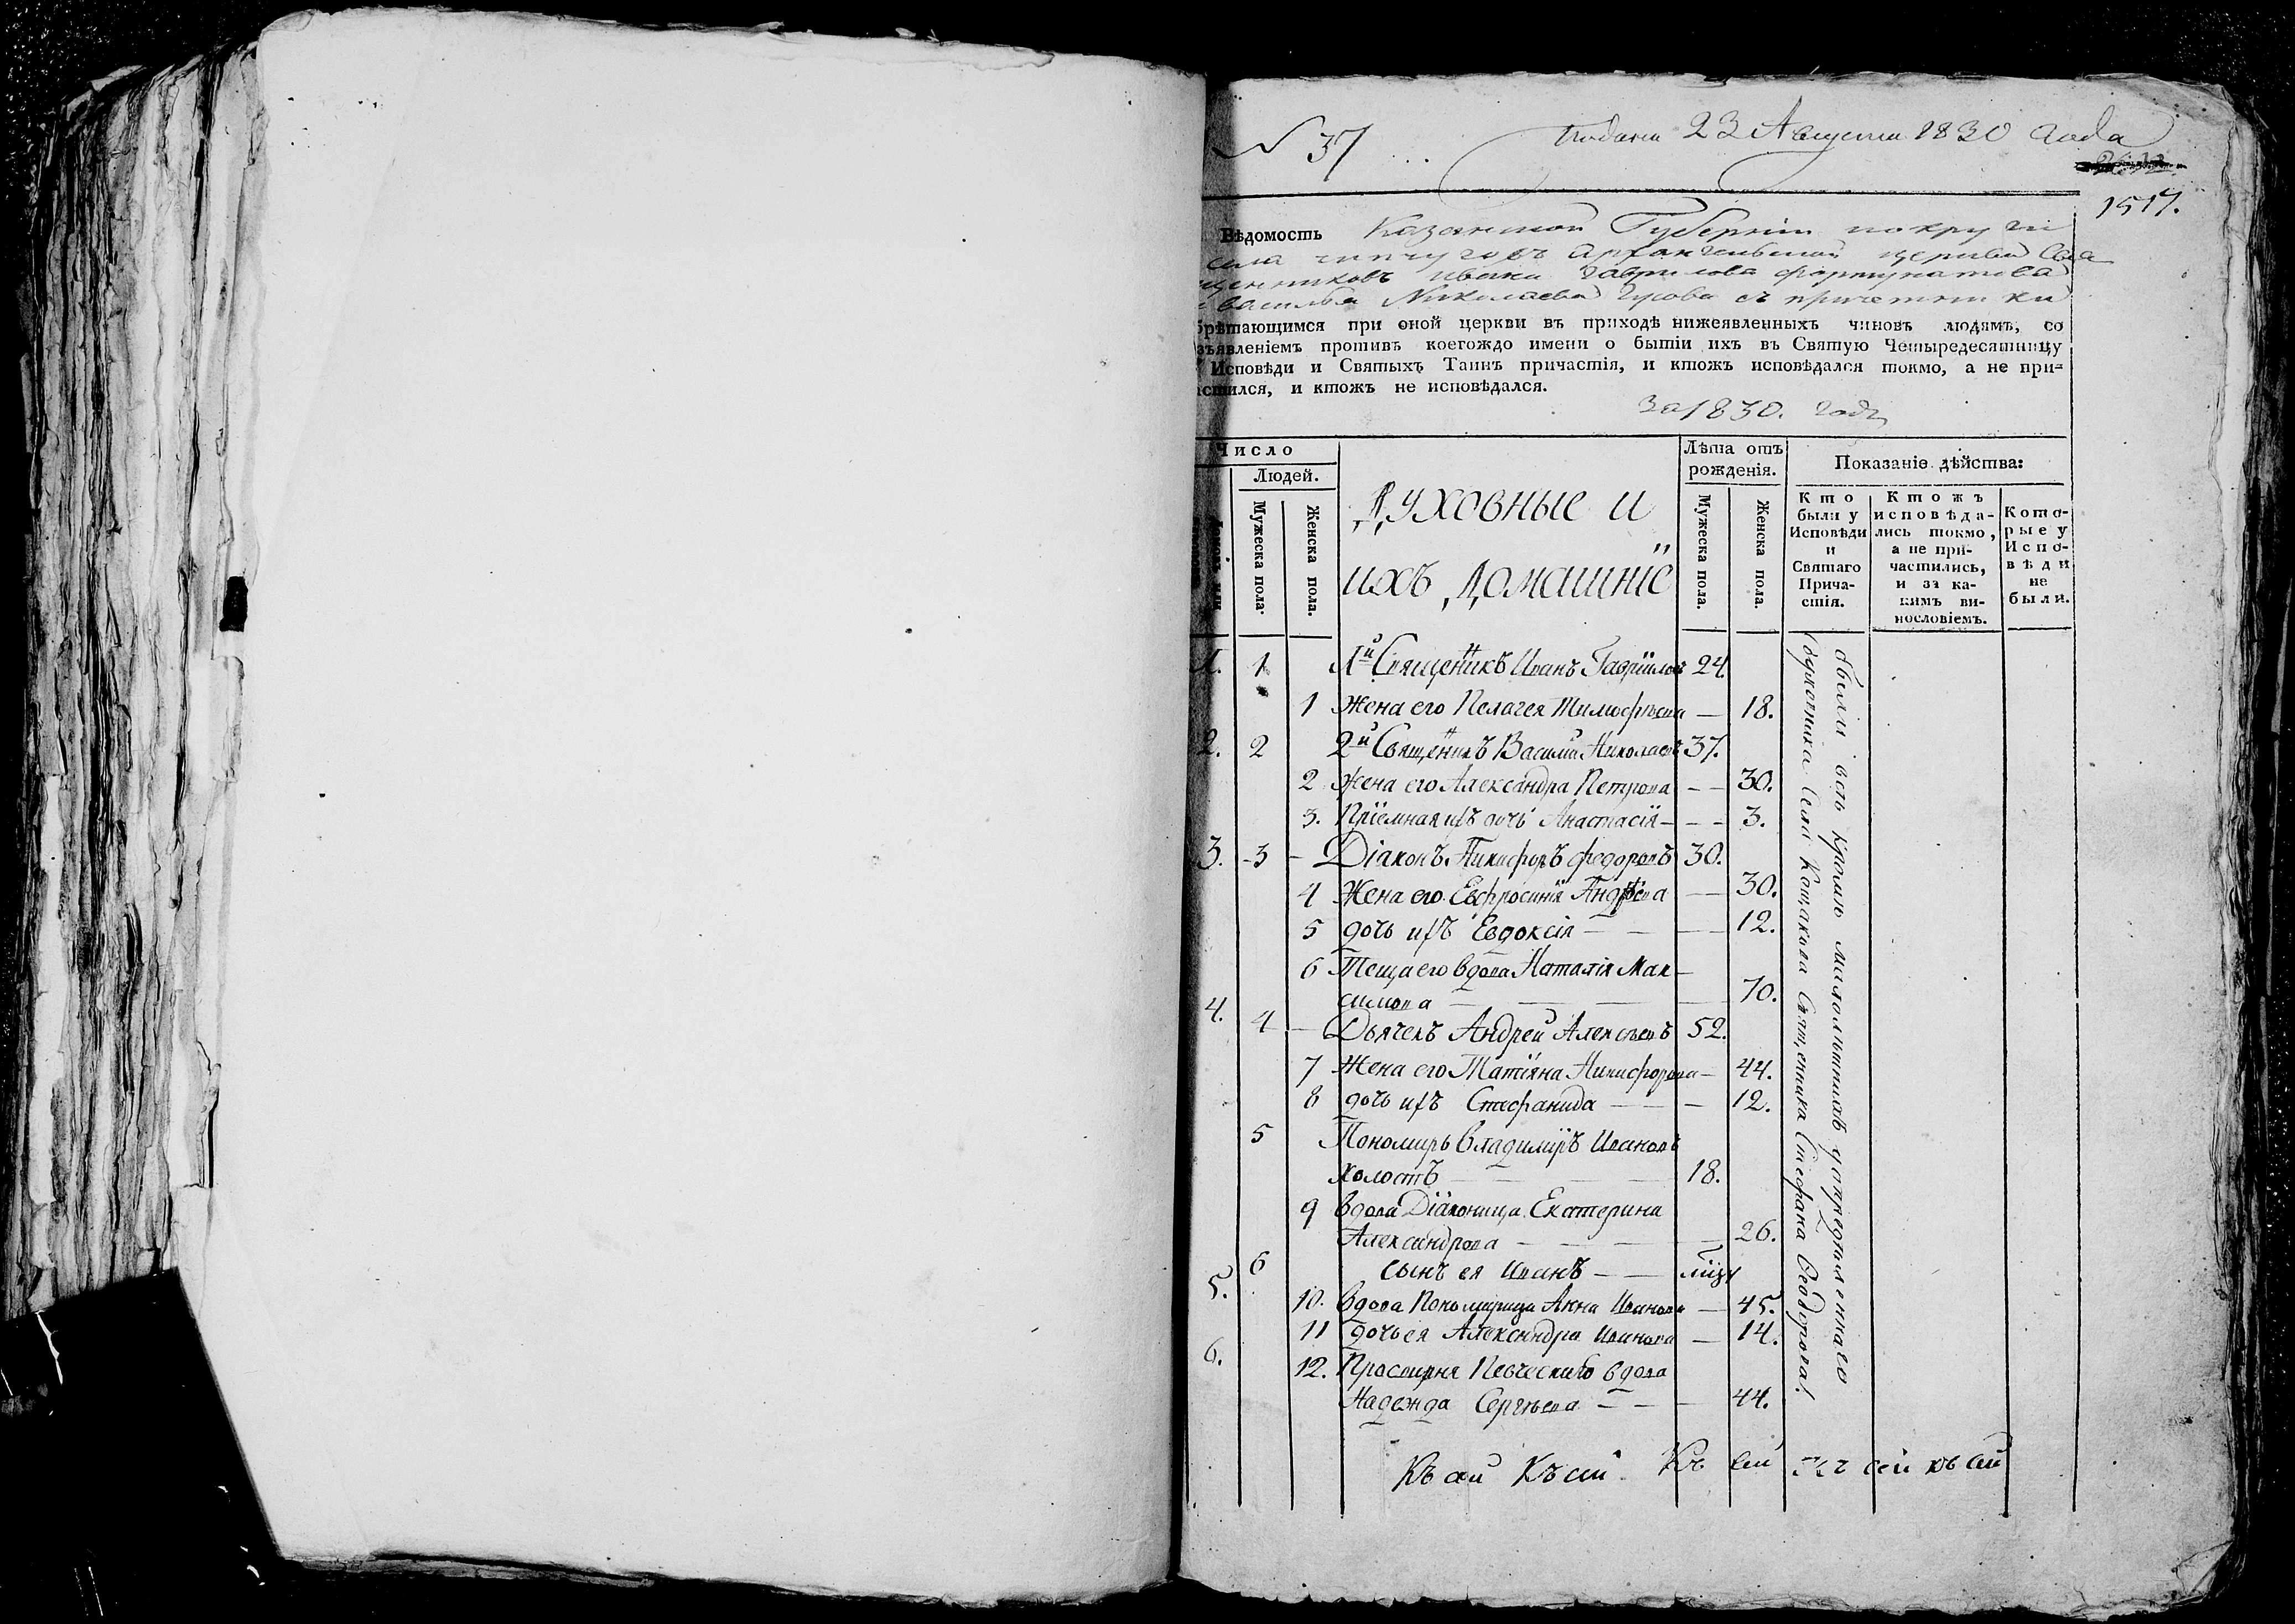 N 37
Подана 23 Августа 1830 года
1517.
Вѣдомость Казанской Губерніи округи
села чипчуговъ архангельской церкви Свя
щенниковъ ивана Гаврилова фортунатова
и василья Николаева Гусова съ причетники
брѣтающимся при оной церкви въ приходѣ нижеявленныхъ чиновъ людямъ, со
зъявленіемъ противъ коегождо имени о бытіи ихъ въ Святую Четыредесятницу
Исповѣди и Святыхъ Таинъ причастія, и ктожъ исповѣдался токмо, а не при=
стился, и ктожъ не исповѣдался.
За 1830. годъ
Число
Людей.
Мужеска пола.
Женска пола.
Духовные и
ихъ домашніе
Лѣта отъ
рожденія.
Мужеска пола.
Женска пола.
Показаніе дѣйства:
Кто
были у
Исповѣди
и
Святаго
Прича-
стія.
Ктожъ
исповѣда-
лись токмо,
а не при-
частились,
и за ка-
кимъ ви-
нословіемъ.
Кото-
рые у
Испо-
вѣди
не
были.
1. 1 1й Священникъ Иванъ Гавриловъ 24.
1 Жена его Пелагея Тимофѣева — 18.
2. 2 2й Священникъ Василій Николаевъ 37.
2 Жена его Александра Петрова — — 30.
3. Пріемная ихъ дочь Анастасія — — — 3.
3. 3 — Діаконъ Никифоръ Федоровъ 30.
4 Жена его Евфросинія Андрѣева — 30.
5 дочь ихъ Евдоксія — — — 12.
6 Теща его вдова Наталія Мак-
симова — — — — 70.
4. 4 — Дьячекъ Андрей Алексѣевъ 52.
7 Жена его Татіяна Никифорова — 44.
8 дочь ихъ Стефанида — — — 12.
5 Пономарь Владимиръ Ивановъ
холостъ — — — 18.
9 вдова Діаконица Екатерина
Александрова — — — — 26.
6 сынъ ея Иванъ — —
5. 10. вдова Пономарица Анна Иванова — 45.
11 дочь ея Александра Иванова — 14.
6. 12. Просвирня вдова
Надежда Сергѣева — — — 44.
были всѣ кромѣ малолѣтныхъ у
духовника села Кощакова Священника Стефана Ѳеодорова.
Къ сей Къ сей Къ сей Къ сей къ сей